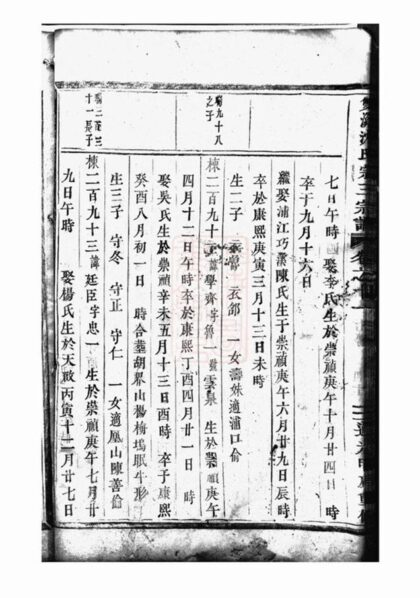 七日午時 娶李氏生於崇禎庚午十月廿四日 時
卒于九月十六日
繼娶浦江巧溪陳氏生于崇禎庚午六月廿九日辰時
卒於康熙庚寅三月十三日未時
生二子 一女壽妹適浦口俞
之子
棟二百九十 諱學齊字魯一號雲泉 生於崇禎庚午
四月十二日午時卒於康熙丁酉四月廿一日 時
娶吳氏生於崇禎辛未五月十三日酉時 卒于康熙
癸酉八月初一日 時合葬胡界山楊梅塢眠牛形
生三子 守冬 守正 守仁 一女適鳳山陳善倫
十一長子
棟二百九十三諱廷臣字忠一 生於崇禎庚午七月廿
九日午時 娶楊氏生於天啟丙寅十二月廿七日